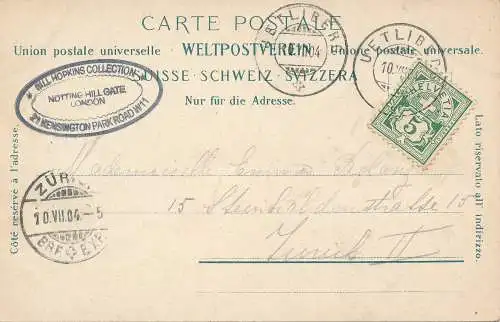 CARTE POSTALE
Union postale universelle WELTPOSTVEREIN Unione postale universale.
SUISSE SCHWEIZ SVIZZERA
Nur für die Adresse.
UETLIBERG
10.VII.04
UETLIBERG
10.VII
HELVETIA
5
* BILL HOPKINS COLLECTION *
NOTTING HILL GATE
LONDON
21 KENSINGTON PARK ROAD W11
ZÜRI
10.VII.04.-5
BRF. EXP
Côté réservé à l'adresse.
Lato riservato all' indirizzo.
Mademoiselle Emma
15 Steinhaldenstrasse 15
Zurich II